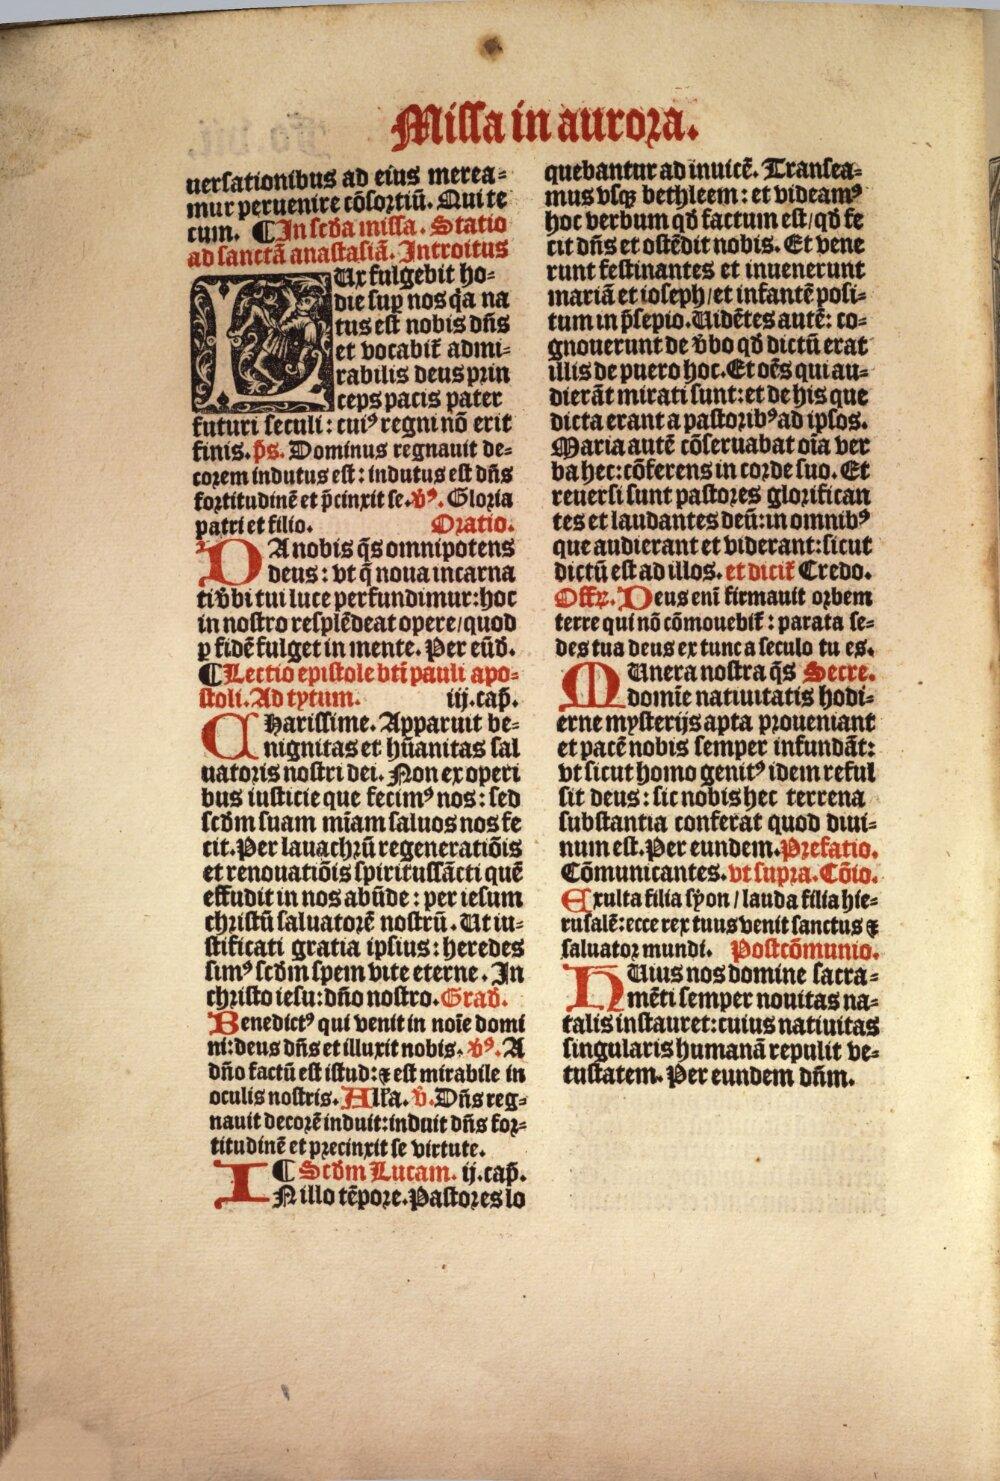 Missa in aurora.
uersationibus ad eius merea-
mur peruenire cōsortiū. Qui te
cum. ¶ In scd̄a missa. Statio
ad sanctā anastasiā. Introitus
LUx fulgebit ho-
die sup nos q̄a na
tus est nobis dn̄s
et vocabit̄ admi-
rabilis deus prin
ceps pacis pater
futuri seculi: cuiꝰ regni nō erit
finis. p̄s. Dominus regnauit de-
corem indutus est: indutus est dn̄s
fortitudinē et p̄cinxit se. v̄ꝰ. Gloria
patri et filio. Oratio.
DA nobis q̄s omnipotens
deus: vt q̄ noua incarna
ti v̄bi tui luce perfundimur: hoc
in nostro resplēdeat opere/ quod
ꝑ fidē fulget in mente. Per eūd̄.
¶ Lectio epistole bt̄i pauli apo-
stoli. Ad tytum. iij. cap̄.
CHarissime. Apparuit be-
nignitas et hūanitas sal
uatoris nostri dei. Non ex operi
bus iusticie que fecimꝰ nos: sed
scd̄m suam mīam saluos nos fe
cit. Per lauachrū regeneratiōis
et renouatiōis spiritussācti quē
effudit in nos abūde: per iesum
christū saluatorē nostrū. Ut iu-
stificati gratia ipsius: heredes
simꝰ scd̄m spem vite eterne. In
christo iesu: dn̄o nostro. Grad̄.
Benedictꝰ qui venit in noīe domi
ni: deus dn̄s et illuxit nobis. v̄ꝰ. A
dn̄o factū est istud: ⁊ est mirabile in
oculis nostris. All̄a. v̄. Dn̄s reg-
nauit decorē induit: induit dn̄s for-
titudinē et precinxit se virtute.
¶ Scd̄m Lucam. ij. cap̄.
INillo tēpore. Pastores lo
quebantur ad inuicē. Transea-
mus vsqꝫ bethleem: et videamꝰ
hoc verbum qd̄ factum est/ qd̄ fe
cit dn̄s et ostēdit nobis. Et vene
runt festinantes et inuenerunt
mariā et ioseph/ et infantē posi-
tum in p̄sepio. Uidētes autē: co-
gnouerunt de v̄bo qd̄ dictū erat
illis de puero hoc. Et oēs qui au-
dierāt mirati sunt: et de his que
dicta erant a pastoribꝰ ad ipsos.
Maria autē cōseruabat oīa ver
ba hec: cōferens in corde suo. Et
reuersi sunt pastores glorifican
tes et laudantes deū: in omnibꝰ
que audierant et viderant: sicut
dictū est ad illos. et dicit̄ Credo.
Offꝛ. Deus enī firmauit orbem
terre qui nō cōmouebit̄: parata se-
des tua deus ex tunc a seculo tu es.
MUnera nostra q̄s Secre.
domīe natiuitatis hodi-
erne mysterijs apta proueniant
et pacē nobis semper infundāt:
vt sicut homo genitꝰ idem reful
sit deus: sic nobis hec terrena
substantia conferat quod diui-
num est. Per eundem. Prefatio.
Cōmunicantes. vt supra. Cōio.
Exulta filia syon / lauda filia hie-
rusalē: ecce rex tuus venit sanctus ⁊
saluator mundi. Postcōmunio.
HUius nos domine sacra-
mēti semper nouitas na-
talis instauret: cuius natiuitas
singularis humanā repulit ve-
tustatem. Per eundem dn̄m.